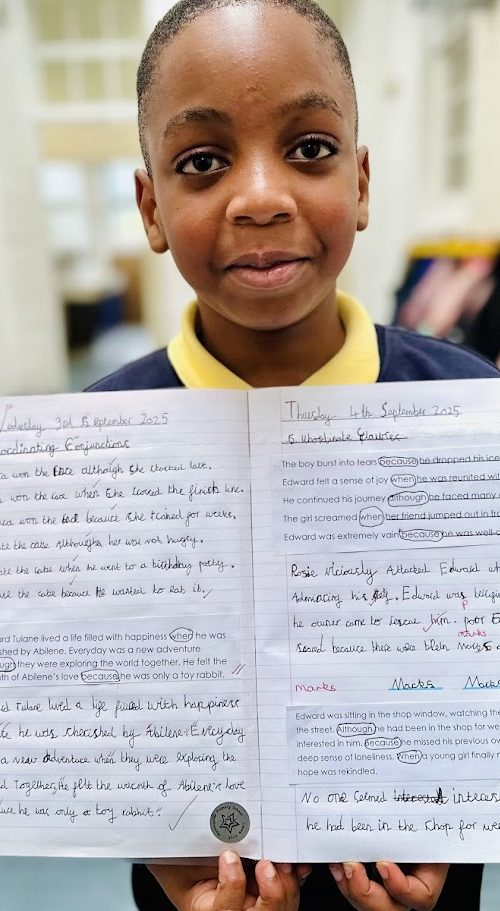 3rd September 2025
oordinating Conjunctions
won the race although she started last.
won the race when she crossed the finish line.
won the because she trained for weeks.
ate the cake Although he was not hungry.
ate the cake when he went to a birthday party.
ate the cake because he wanted to eat it.
ard Tulane lived a life filled with happiness when he was
shed by Abilene. Everyday was a new adventure
ough they were exploring the world together. He felt the
th of Abilene's love because he was only a toy rabbit.
d Tulane lived a life filled with happiness
he was cherished by Abilene. Everyday
a new adventure when they were exploring the
d Together, he felt the warmth of Abilene's love
he was only a toy rabbit.
Thursday 4th September 2025
Subordinate Clauses
The boy burst into tears because he dropped his ice
Edward felt a sense of joy when he was reunited with
He continued his journey although he faced many
The girl screamed when her friend jumped out in fr
Edward was extremely vain because he was well-c
Rosie viciously Attacked Edward wh
Admiring his . Edward was
he owner came to rescue him. poor E
because there were
marks
marks Macks Macks
Edward was sitting in the shop window, watching the
the street. Although he had been in the shop for we
interested in him. Because he missed his previous ow
deep sense of loneliness. When a young girl finally n
hope was rekindled.
No one seemed interes
he had been in the shop for wee